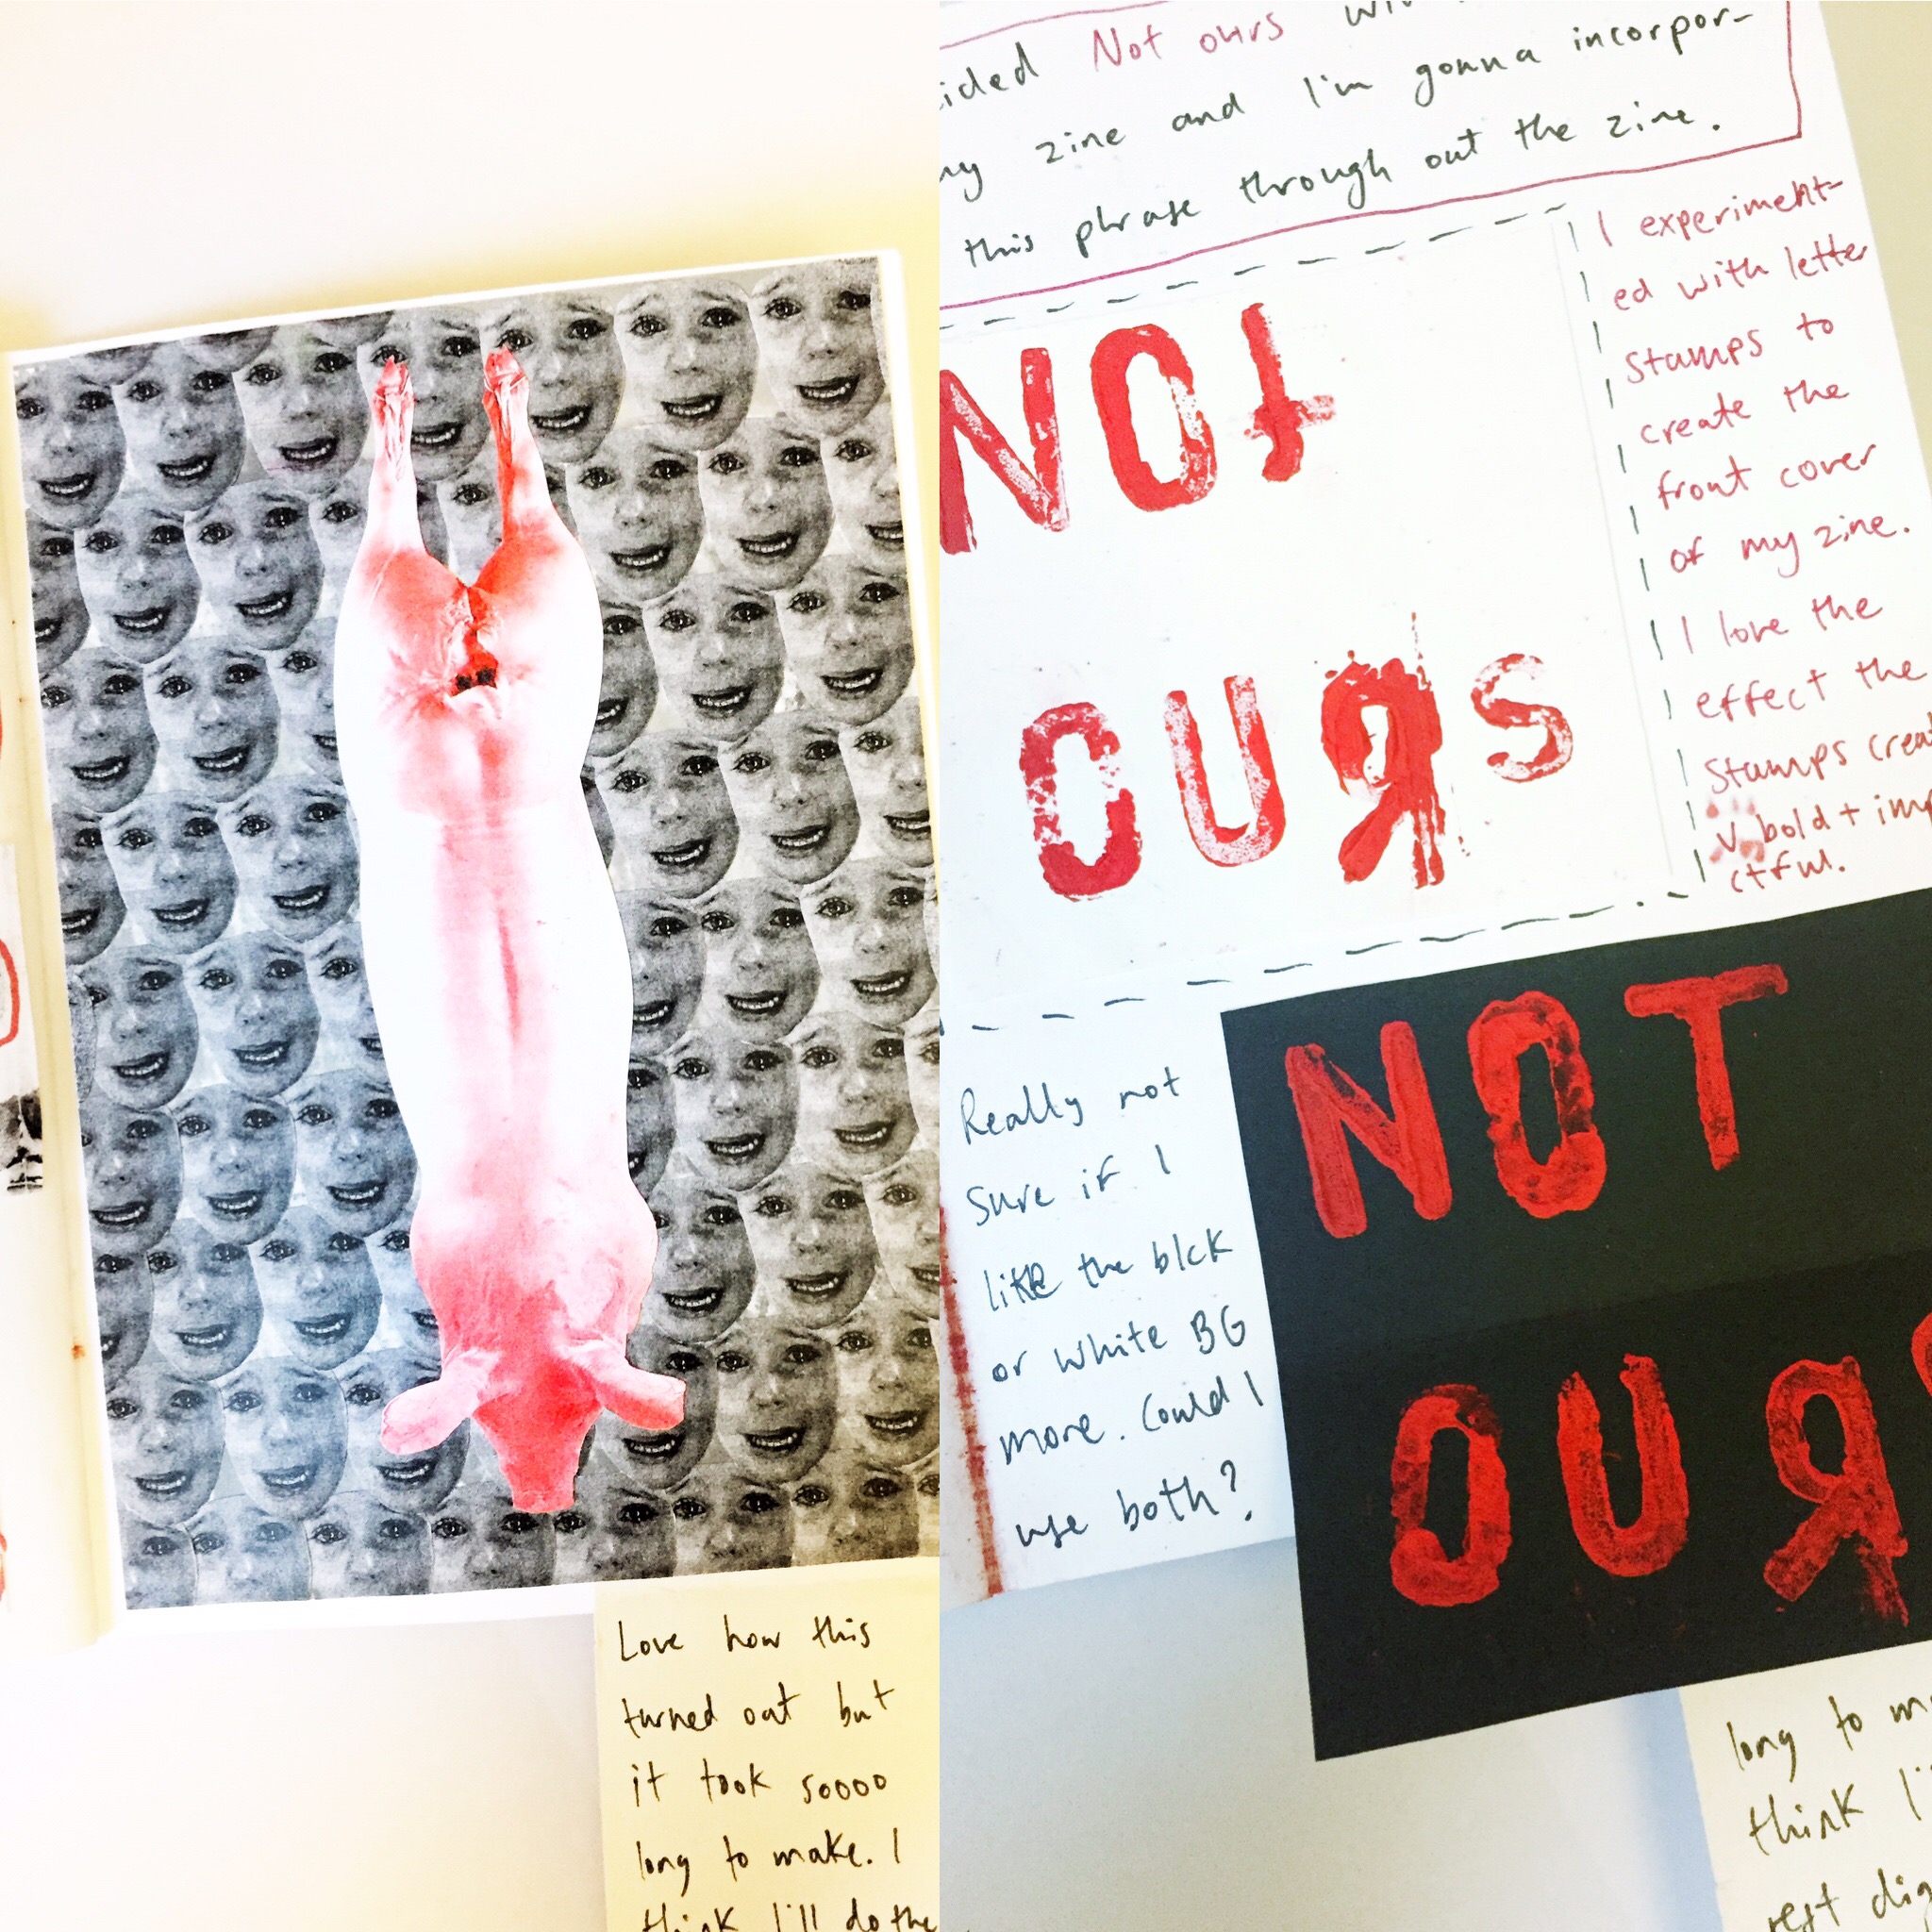 Love how this
turned out but
it took soooo
long to make. I
think I'll do the
ided Not ours
my zine and I'm gonna incorpor-
this phrase through out the zine.
NOt
OURS
I experiment-
ed with letter
stamps to
create the
front cover
of my zine.
I love the
effect the
stamps crea
V. bold + imp
ctful.
Really not
sure if I
like the blck
or white BG
more. Could I
use both?
NOT
OUR
long to m
think I'
rest dig